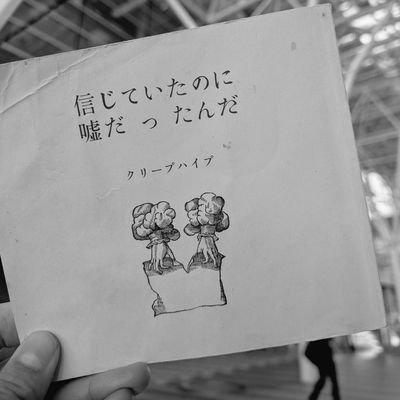 信じていたのに
嘘だったんだ
クリープハイプ